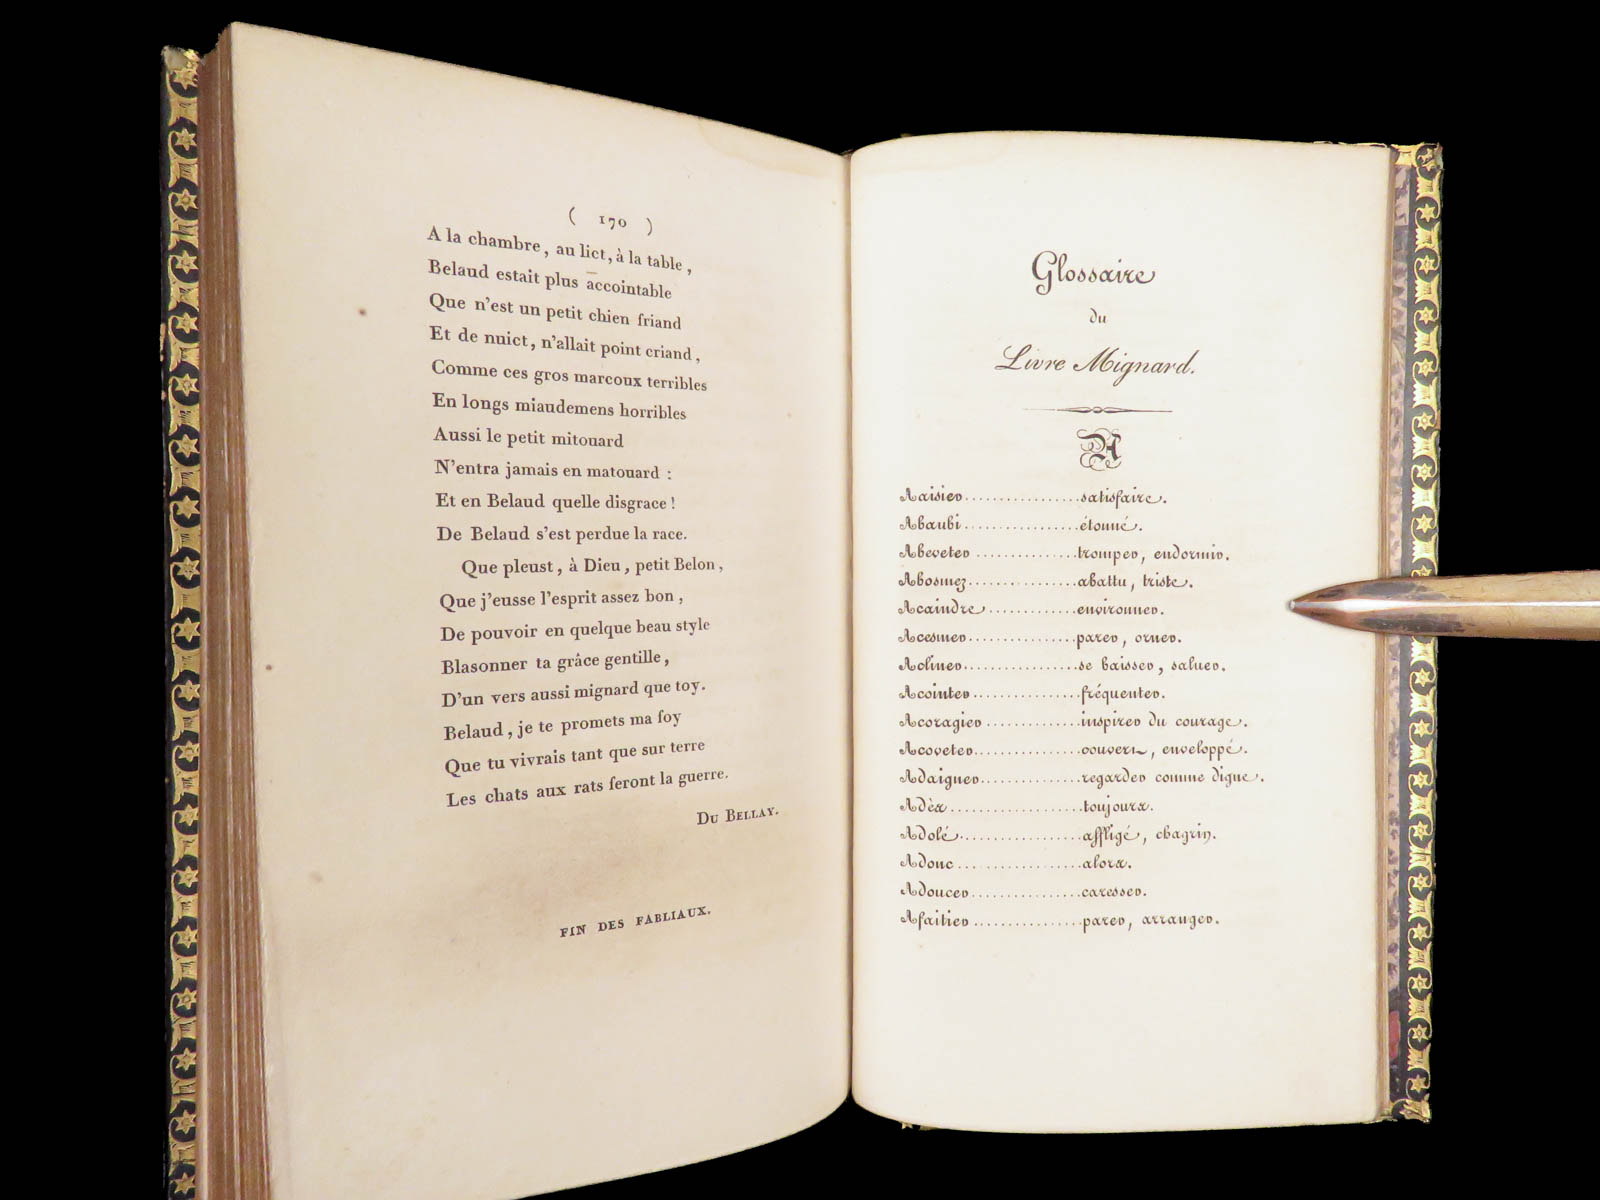 ( 170 )
A la chambre, au lict, à la table,
Belaud estait plus accointable
Que n'est un petit chien friand
Et de nuict, n'allait point criand,
Comme ces gros marcoux terribles
En longs miaudemens horribles
Aussi le petit mitouard
N'entra jamais en matouard :
Et en Belaud quelle disgrace !
De Belaud s'est perdue la race.
Que pleust, à Dieu, petit Belon,
Que j'eusse l'esprit assez bon,
De pouvoir en quelque beau style
Blasonner ta grâce gentille,
D'un vers aussi mignard que toy.
Belaud, je te promets ma foy
Que tu vivrais tant que sur terre
Les chats aux rats feront la guerre.
DU BELLAY.
FIN DES FABLIAUX.
Glossaire
du
Livre Mignard.
A
Aaisier................satisfaire.
Abaubi................étonné.
Abeveter..............tromper, endormir.
Abosmez...............abattu, triste.
Acaindre.............environner.
Acesmer...............parer, orner.
Acliner................se baisser, saluer.
Acointer...............fréquenter.
Acoragier.............inspirer du courage.
Acoveter..............couvert, enveloppé.
Adaigner..............regarder comme digne.
Adès..................toujours.
Adolé.................affligé, chagrin.
Adonc.................alors.
Adoucer...............caresser.
Afaitier...............parer, arranger.